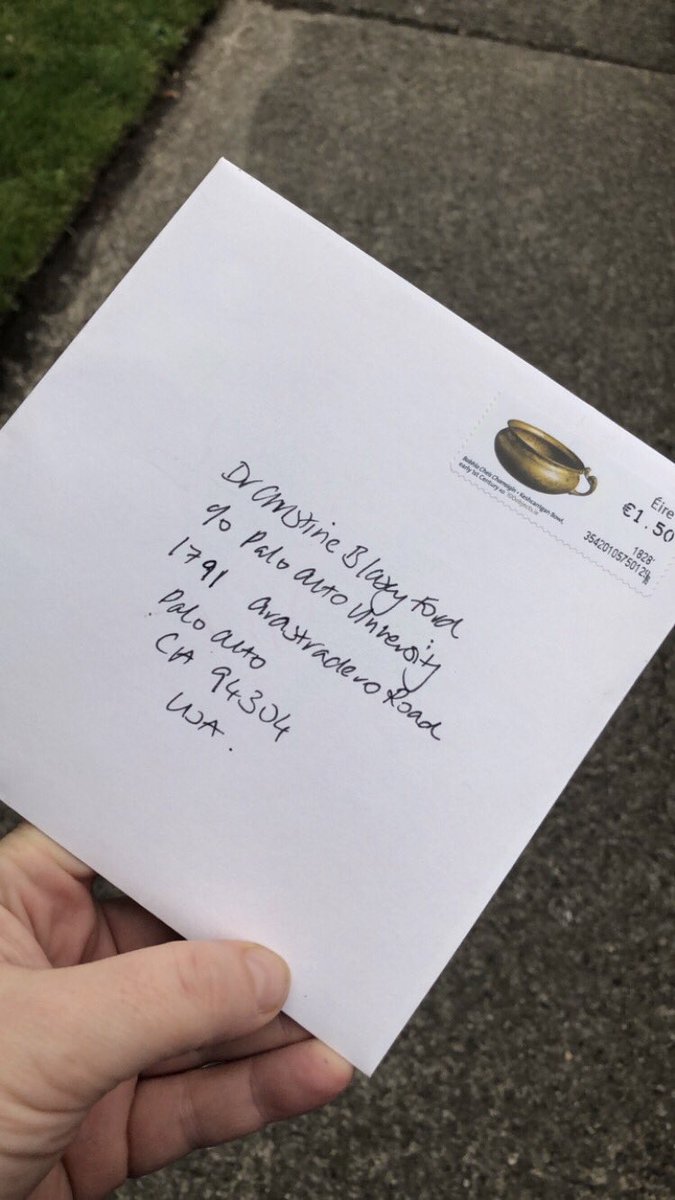 Babhla Cheis Charraigín • Keshcarrigan Bowl,
early 1st Century AD 100objects.ie
Éire
€1.50
1828
Dr Christine Blasey Ford
c/o Palo Alto University
1791 Arastradero Road
Palo Alto
CA 94304
USA.